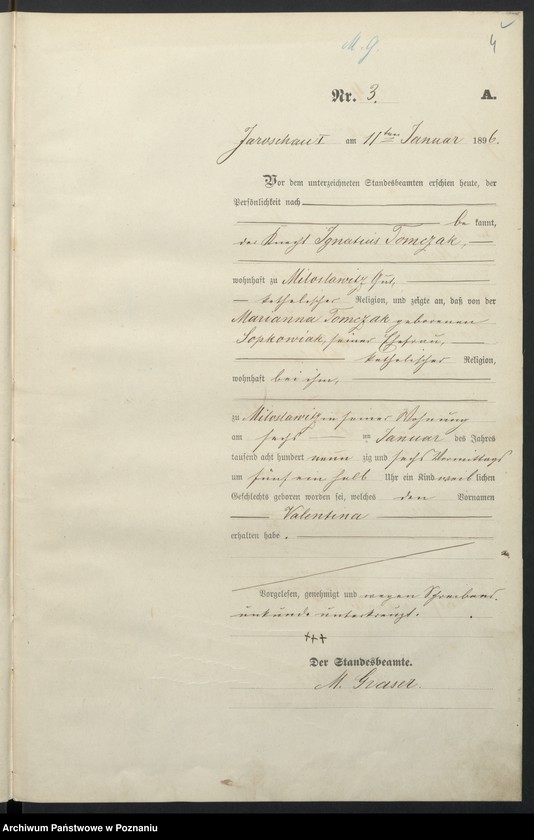 M. G.
4
Nr. 3. A.
Jaroschau I am 11ten Januar 1896.
Vor dem unterzeichneten Standesbeamten erschien heute, der
Persönlichkeit nach
be kannt,
der Knecht Ignatius Tomczak,
wohnhaft zu Miloslawitz Gut,
katholischer Religion, und zeigte an, daß von der
Marianna Tomczak geborenen
Sopkowiak, seiner Ehefrau,
katholischer Religion,
wohnhaft bei ihm,
zu Miloslawitz in seiner Wohnung
am sechs ten Januar des Jahres
tausend acht hundert neun zig und sechs Vormittags
um fünf ein halb Uhr ein Kind weib lichen
Geschlechts geboren worden sei, welches den Vornamen
Valentina
erhalten habe.
Vorgelesen, genehmigt und wegen Schreibens-
unkunde unterkreuzt.
+++
Der Standesbeamte.
M. Graser.
Archiwum Państwowe w Poznaniu